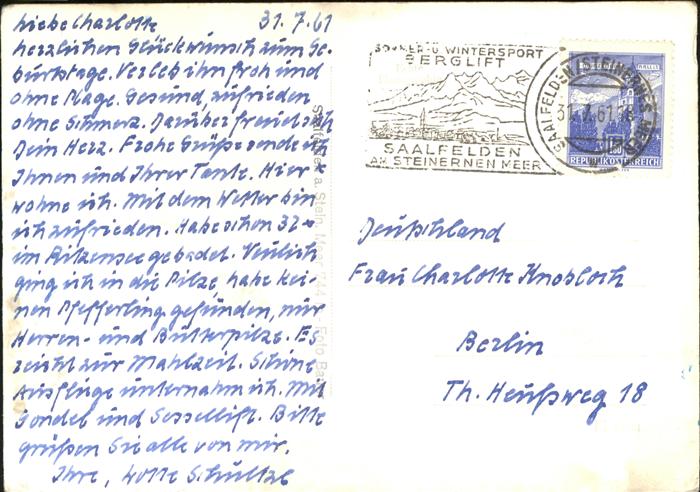 Liebe Charlotte 31.7.61
herzlichen Glückwunsch zum Ge-
burtstage. Verleb ihn froh und
ohne Plage. Gesund, zufrieden
ohne Schmerz. Darüber freue sich
Dein Herz. Frohe Grüße sende ich
Ihnen und Ihrer Tante. Hier
wohne ich. Mit dem Wetter bin
ich zufrieden. Habe schon 32 x
im Ritzensee gebadet. Neulich
ging ich in die Pilze, habe kei-
nen Pfefferling gefunden, nur
Herren- und Butterpilze. Es
reicht zur Mahlzeit. Schöne
Ausflüge unternahm ich. Mit
Gondel und Sessellift. Bitte
grüßen Sie alle von mir.
Ihre, Lotte Schultze
SOMMER- U. WINTERSPORT
BERGLIFT
SAALFELDEN
AM STEINERNEN MEER
SAALFELDEN AM STEINERNEN MEER
31.7.61
REPUBLIK ÖSTERREICH
Deutschland
Frau Charlotte Knobloch
Berlin
Th. Heußweg 18